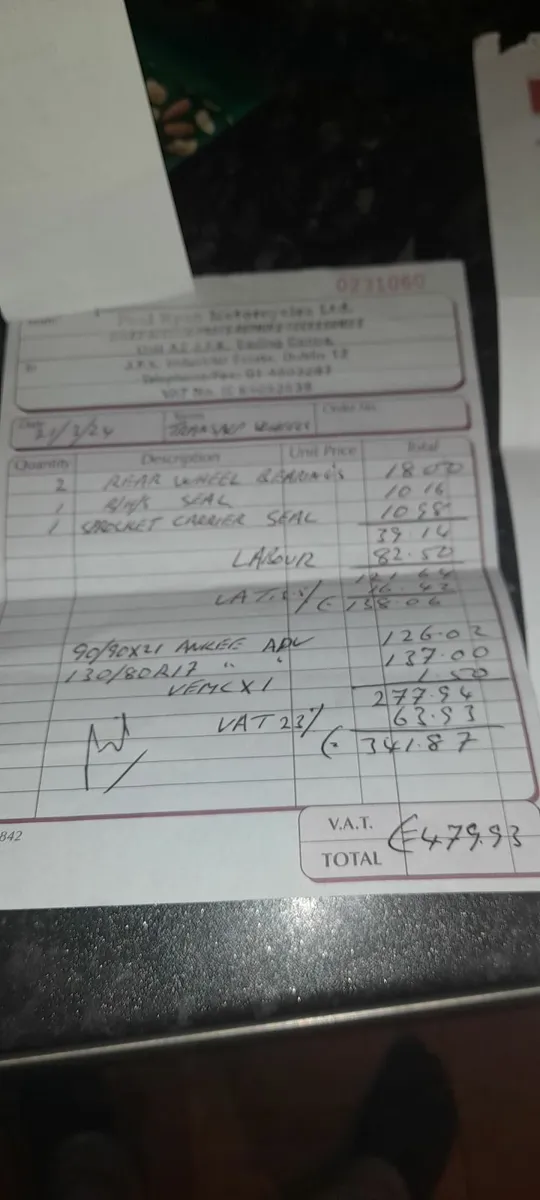 0231060
Paul Ryan Motorcycles Ltd.
To
Date
21/3/24
TRANSALP WHEELS
Order No.
Quantity Description Unit Price Total
2 REAR WHEEL BEARINGS 18.00
1 R/H/S SEAL 10 16
1 SPROCKET CARRIER SEAL 10 98
39.14
LABOUR 82.50
121 64
VAT 16.42
€ 138.06
90/90X21 ANKEE ADV 126.02
130/80R17 " " 137.00
VEMC X 1 1.50
277.94
VAT 23% 63.93
€ 341.87
842
V.A.T.
TOTAL €479.93